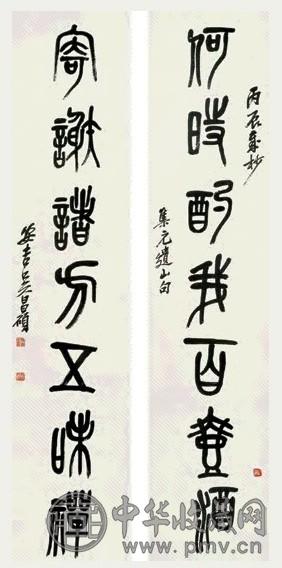 丙辰歲杪
何時酌我百壺酒
集元遺山句
寄謝諸方五味禪
安吉吳昌碩
中华收藏网
www.pmv.cn